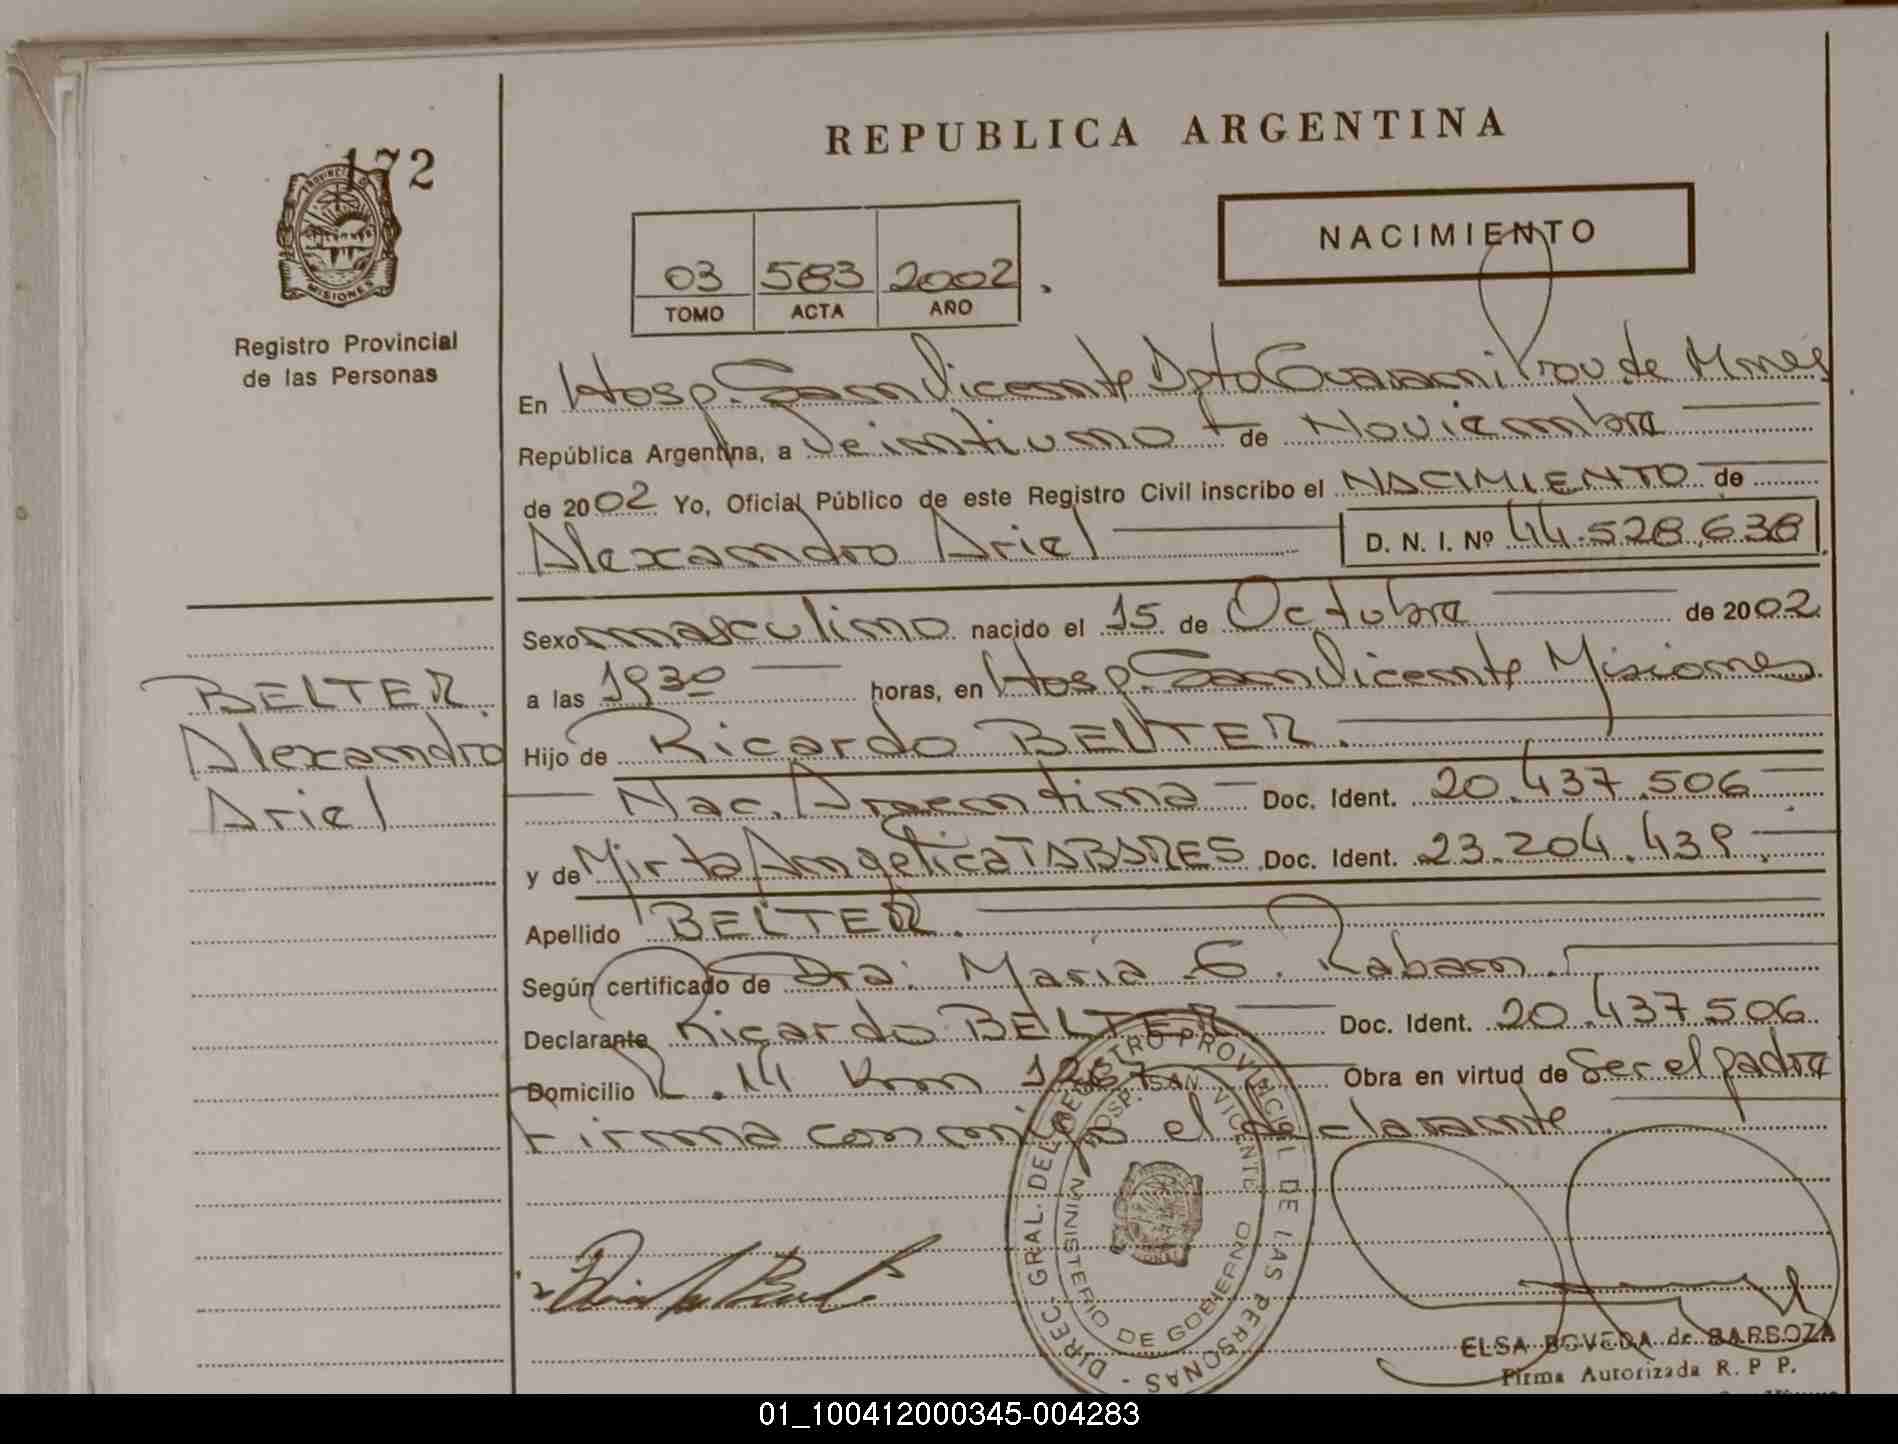 172
PROVINCIA DE
MISIONES
Registro Provincial
de las Personas
REPUBLICA ARGENTINA
NACIMIENTO
03 583 2002
TOMO ACTA AÑO
En Hosp. San Vicente Dpto Guarani Prov de Mnes
República Argentina, a Veintiuno de Noviembre
de 2002 Yo, Oficial Público de este Registro Civil inscribo el NACIMIENTO de
Alexandro Ariel D. N. I. Nº 44.528.638
Sexo masculino nacido el 15 de Octubre de 2002
a las 1930 horas, en Hosp. San Vicente Misiones
Hijo de Ricardo BELTER.
Nac. Argentina Doc. Ident. 20.437.506
y de Mirta Angelica TABARES Doc. Ident. 23.204.439.
Apellido BELTER.
Según certificado de Dra: Maria G. Raban.
Declarante Ricardo BELTER Doc. Ident. 20.437.506
Domicilio R. 14 Km 1267 Obra en virtud de Ser el padre
Firma conmigo el declarante
BELTER
Alexandro
Ariel
DIREC. GRAL. DEL REGISTRO PROVINCIAL DE LAS PERSONAS -
HOSP. SAN VICENTE
MINISTERIO DE GOBIERNO
ELSA BOVEDA de BARBOZA
Firma Autorizada R. P P.
01_100412000345-004283